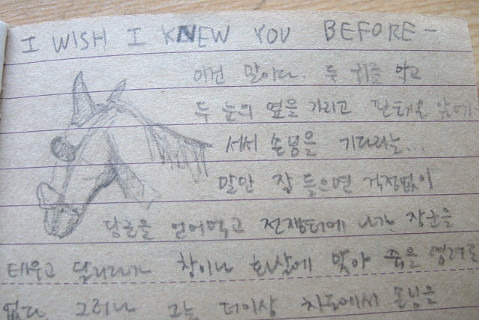 I WISH I KNEW YOU BEFORE-
이건 말이다. 두 귀를 막고
두 눈의 옆을 가리고 앞에
서서 손님을 기다리는...
말만 잘 들으면 걱정없이
당근을 얻어먹고 전쟁터에 나가 장군을
태우고 달리다가 창이나 화살에 맞아 죽을 염려도
없다. 그러나 그는 더이상 차도에서 손님을